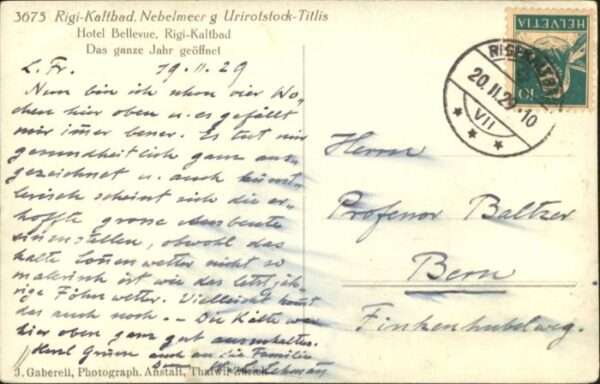 3675 Rigi-Kaltbad. Nebelmeer g Urirotstock-Titlis
Hotel Bellevue, Rigi-Kaltbad
Das ganze Jahr geöffnet
L. Fr. 19. II. 29
Nun bin ich schon vier Wo-
chen hier oben u. es gefällt
mir im̅er besser. Es tut mir
gesundheitlich ganz aus-
gezeichnet u. auch künst-
lerisch scheint sich die er-
hoffte grosse Ausbeute
einzustellen, obwohl das
kalte wetter nicht so
malerisch ist wie das letztjäh-
rige Föhnwetter. Vielleicht kom̅t
das auch noch. – Die Kälte war
hier oben ganz gut auszuhalten.
Herzl. Grüsse auch an die Familie
J. Gaberell, Photograph. Anstalt, Thalwil-Zürich
HELVETIA
10
RIGI-KALTBAD
20. II. 29. 10
VII
Herrn
Professor Baltzer
Bern
Finkenhubelweg.